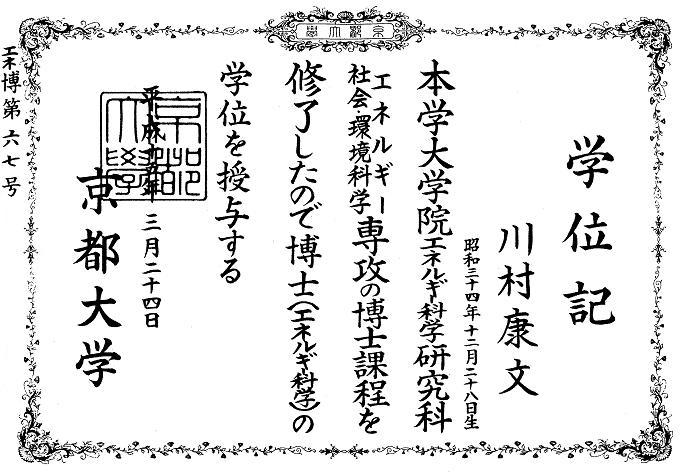 學大都京
学位記
川村康文
昭和三十四年十二月二十八日生
本学大学院エネルギー科学研究科
エネルギー
社会・環境科学専攻の博士課程を
修了したので博士(エネルギー科学)の
学位を授与する
平成十五年三月二十四日
京都大学
エネ博第六七号